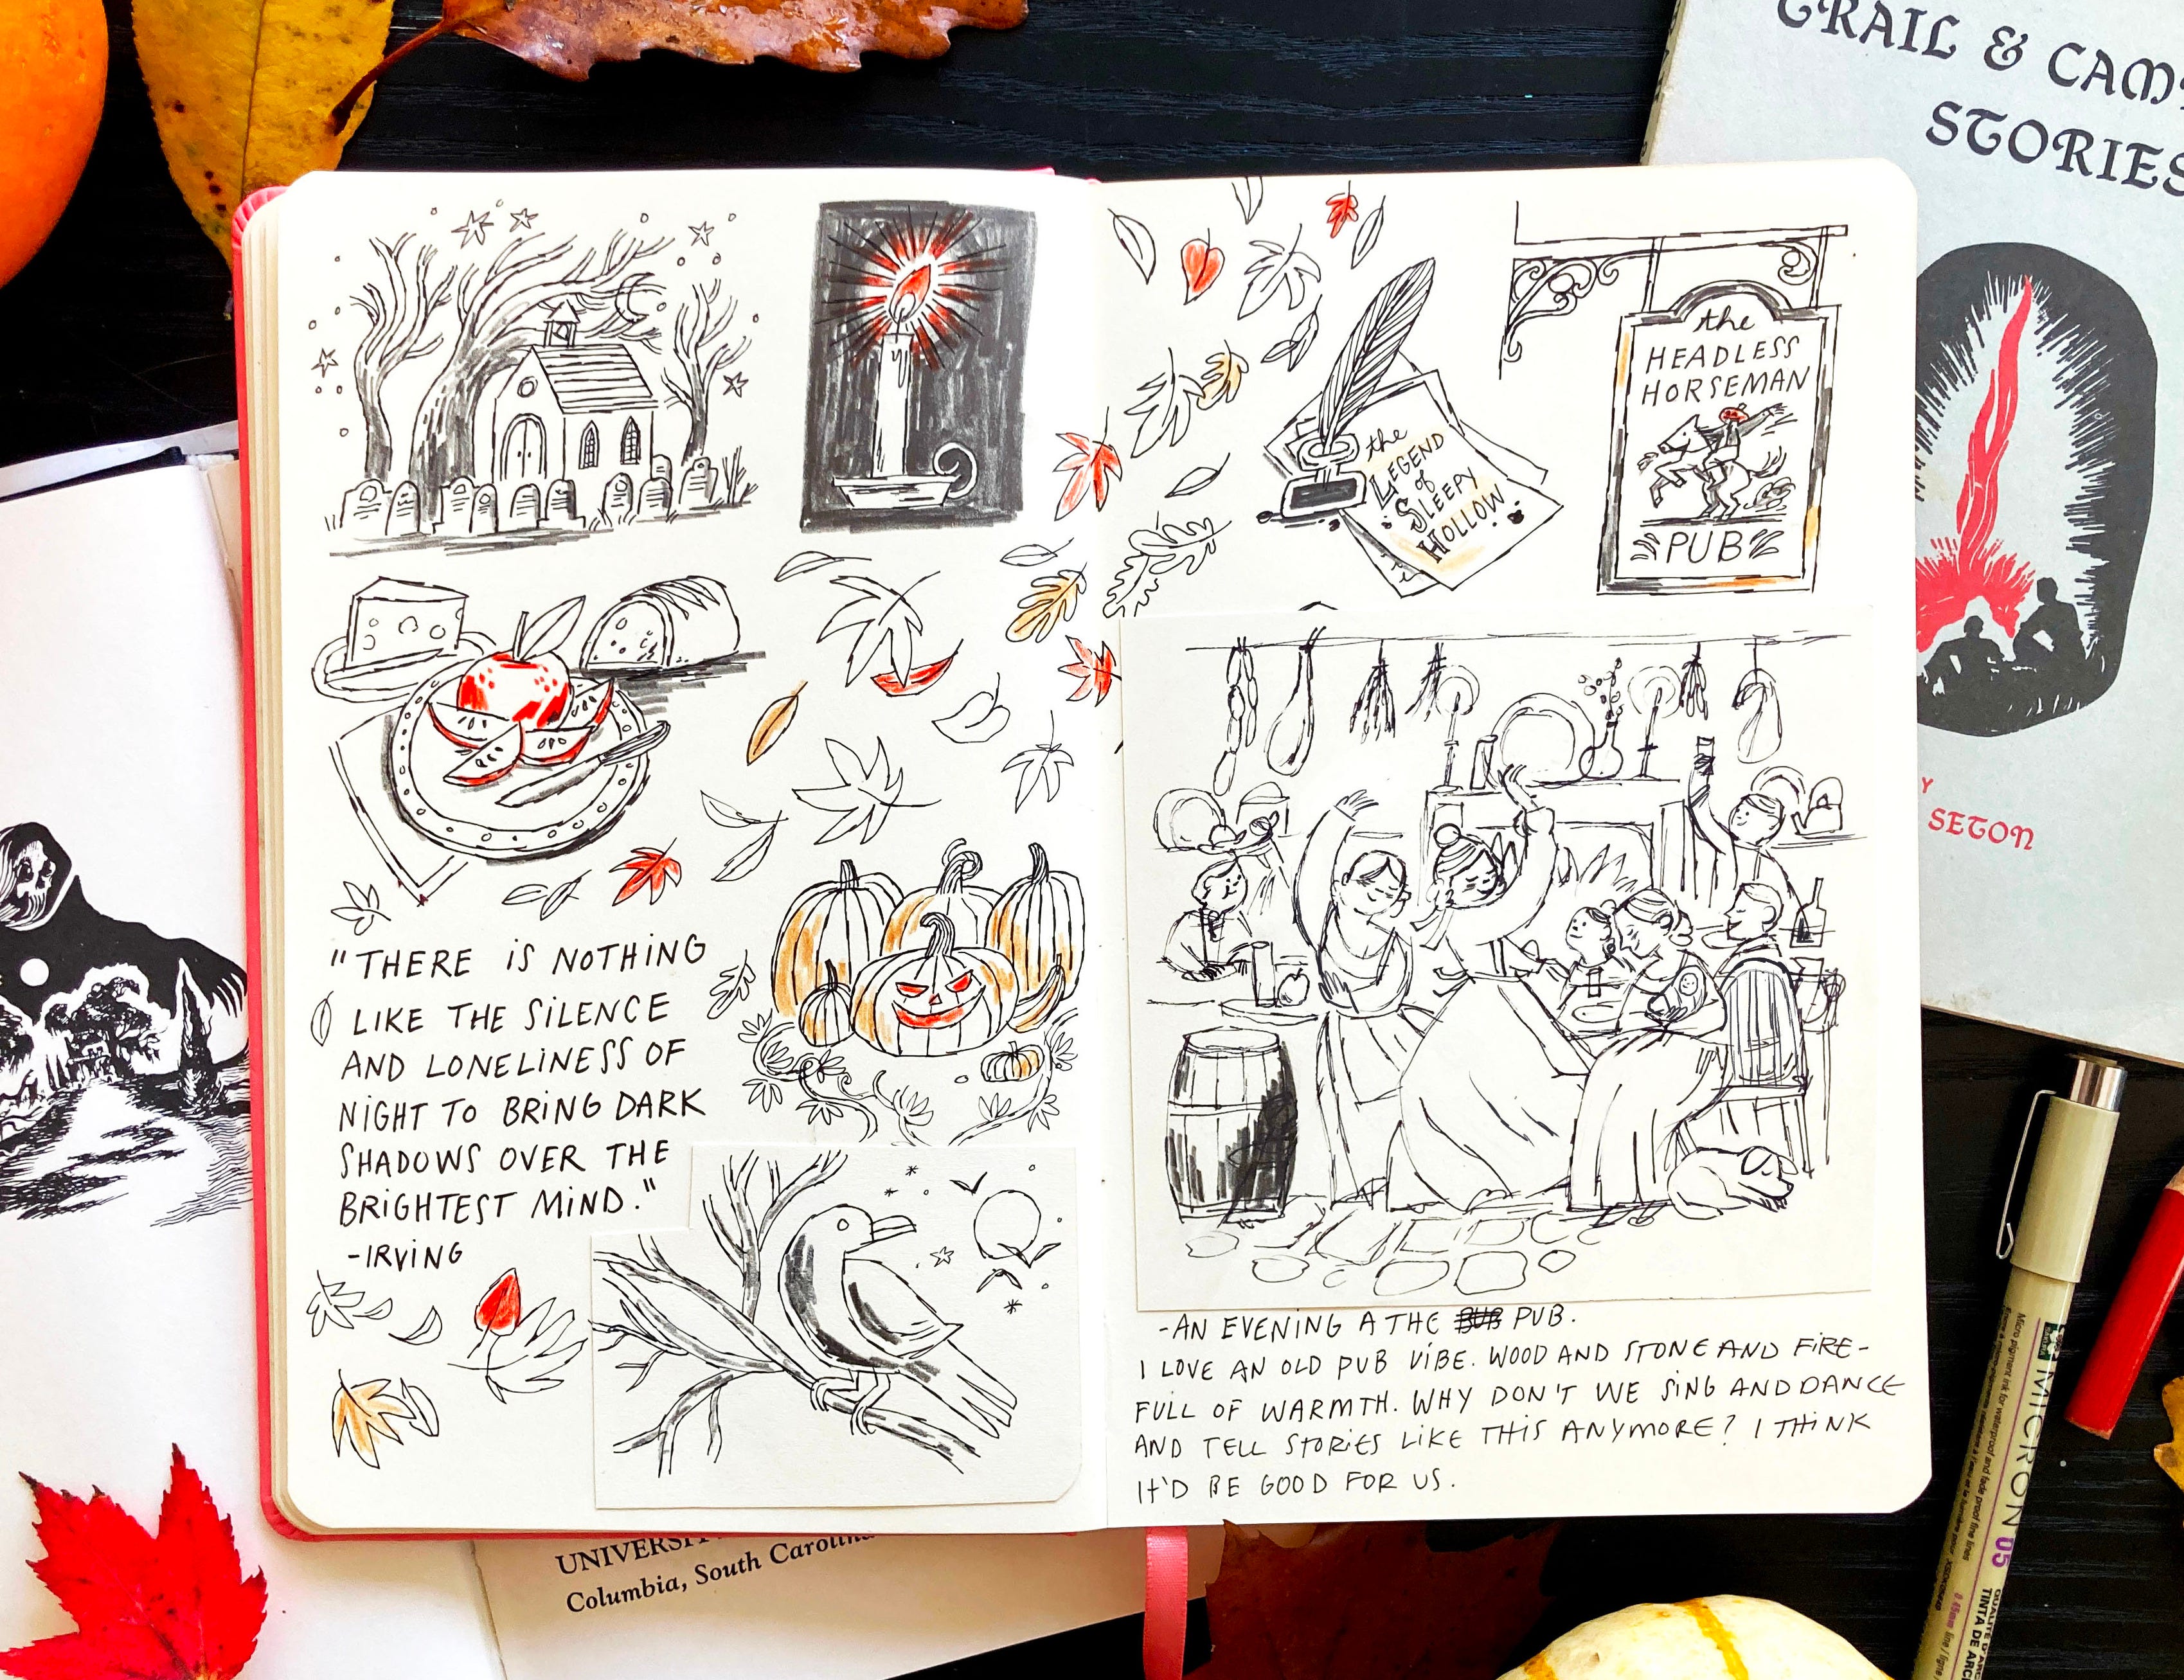 "THERE IS NOTHING
LIKE THE SILENCE
AND LONELINESS OF
NIGHT TO BRING DARK
SHADOWS OVER THE
BRIGHTEST MIND."
-IRVING
the
LEGEND
of
SLEEPY
HOLLOW
the
HEADLESS
HORSEMAN
PUB
-AN EVENING A THE PUB.
I LOVE AN OLD PUB VIBE. WOOD AND STONE AND FIRE-
FULL OF WARMTH. WHY DON'T WE SING AND DANCE
AND TELL STORIES LIKE THIS ANYMORE? I THINK
IT'D BE GOOD FOR US.
& CAM
STORIES
Y
SETON
UNIVERSI
Columbia, South Carolina
MICRON 05